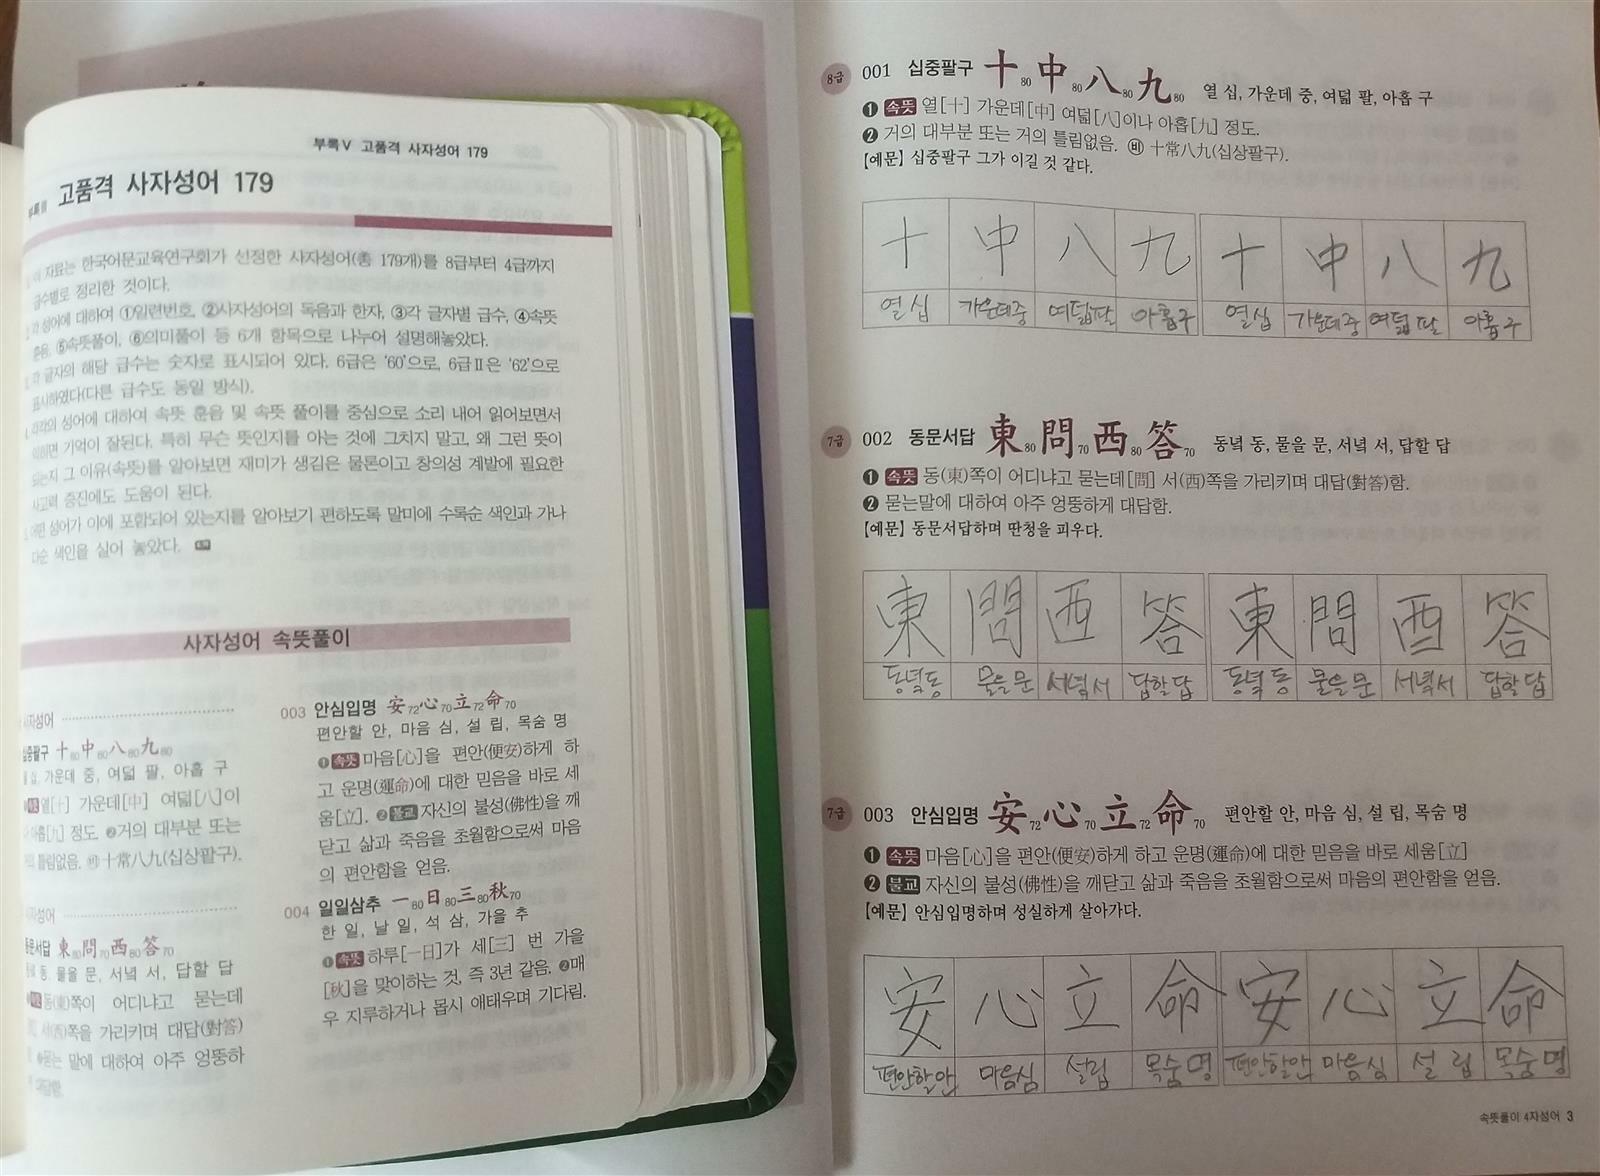 부록Ⅴ 고품격 사자성어 179
고품격 사자성어 179
이 자료는 한국어문교육연구회가 선정한 사자성어(총 179개)를 8급부터 4급까지
급수별로 정리한 것이다.
각 성어에 대하여 ①일련번호, ②사자성어의 독음과 한자, ③각 글자별 급수, ④속뜻
훈음, ⑤속뜻풀이, ⑥의미풀이 등 6개 항목으로 나누어 설명해놓았다.
각 글자의 해당 급수는 숫자로 표시되어 있다. 6급은 '60'으로, 6급Ⅱ은 '62'으로
표시하였다(다른 급수도 동일 방식).
각각의 성어에 대하여 속뜻 훈음 및 속뜻 풀이를 중심으로 소리 내어 읽어보면서
익히면 기억이 잘된다. 특히 무슨 뜻인지를 아는 것에 그치지 말고, 왜 그런 뜻이
되는지 그 이유(속뜻)를 알아보면 재미가 생김은 물론이고 창의성 계발에 필요한
사고력 증진에도 도움이 된다.
어떤 성어가 이에 포함되어 있는지를 알아보기 편하도록 말미에 수록순 색인과 가나
다순 색인을 실어 놓았다.
사자성어 속뜻풀이
사자성어
십중팔구 十80中80八80九80
열 십, 가운데 중, 여덟 팔, 아홉 구
속뜻 열[十] 가운데[中] 여덟[八]이
나 아홉[九] 정도. ❷거의 대부분 또는
거의 틀림없음. ㉥十常八九(십상팔구).
사자성어
동문서답 東80問70西80答70
동녘 동, 물을 문, 서녘 서, 답할 답
속뜻 동(東)쪽이 어디냐고 묻는데
서(西)쪽을 가리키며 대답(對答)
❷묻는 말에 대하여 아주 엉뚱하
게 대답함.
003 안심입명 安72心70立72命70
편안할 안, 마음 심, 설 립, 목숨 명
❶속뜻 마음[心]을 편안(便安)하게 하
고 운명(運命)에 대한 믿음을 바로 세
움[立]. ❷불교 자신의 불성(佛性)을 깨
닫고 삶과 죽음을 초월함으로써 마음
의 편안함을 얻음.
004 일일삼추 一80日80三80秋70
한 일, 날 일, 석 삼, 가을 추
❶속뜻 하루[一日]가 세[三] 번 가을
[秋]을 맞이하는 것, 즉 3년 같음. ❷매
우 지루하거나 몹시 애태우며 기다림.
8급 001 십중팔구 十80中80八80九80 열 십, 가운데 중, 여덟 팔, 아홉 구
❶ 속뜻 열[十] 가운데[中] 여덟[八]이나 아홉[九] 정도.
❷ 거의 대부분 또는 거의 틀림없음. ㉥ 十常八九(십상팔구).
【예문】 십중팔구 그가 이길 것 같다.
十 中 八 九 十 中 八 九
열 십 가운데중 여덟팔 아홉구 열십 가운데중 여덟 팔 아홉 구
7급 002 동문서답 東80問70西80答70 동녘 동, 물을 문, 서녘 서, 답할 답
❶ 속뜻 동(東)쪽이 어디냐고 묻는데[問] 서(西)쪽을 가리키며 대답(對答)함.
❷ 묻는말에 대하여 아주 엉뚱하게 대답함.
【예문】 동문서답하며 딴청을 피우다.
東 問 西 答 東 問 西 答
동녘동 물을문 서녘서 답할답 동녘 동 물을문 서녘서 답할 답
7급 003 안심입명 安72心70立72命70 편안할 안, 마음 심, 설 립, 목숨 명
❶ 속뜻 마음[心]을 편안(便安)하게 하고 운명(運命)에 대한 믿음을 바로 세움[立]
❷ 불교 자신의 불성(佛性)을 깨닫고 삶과 죽음을 초월함으로써 마음의 편안함을 얻음.
【예문】 안심입명하며 성실하게 살아가다.
安 心 立 命 安 心 立 命
편안할안 마음심 설립 목숨명 편안할안 마음심 설 립 목숨 명
속뜻풀이 4자성어 3